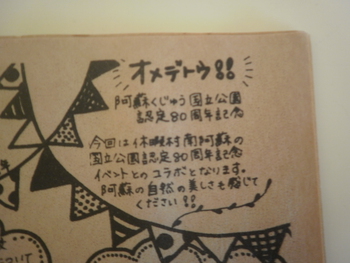 オメデトウ!!
阿蘇くじゅう国立公園
認定80周年記念
今回は休暇村南阿蘇の
国立公園認定80周年記念
イベントとのコラボとなります。
阿蘇の自然の美しさも感じて
ください!!
について